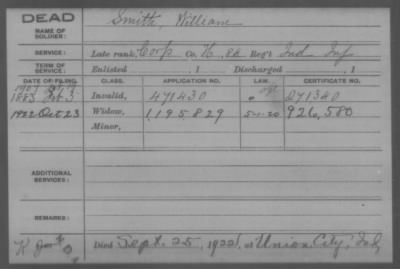 DEAD
NAME OF SOLDIER: Smith, William
SERVICE: Late rank, Corp Co. K, Reg't Ind Inf
TERM OF SERVICE: Enlisted , 1 Discharged , 1
DATE OF FILING. CLASS. APPLICATION NO. LAW. CERTIFICATE NO.
1907
1883 Oct 3 Invalid, 471430 " 271340
1922 Oct 23 Widow, 1,195,829 5-1-20 926,580
Minor,
ADDITIONAL SERVICES:
REMARKS:
Died Sept. 25, 1922, at Union City, Ind,